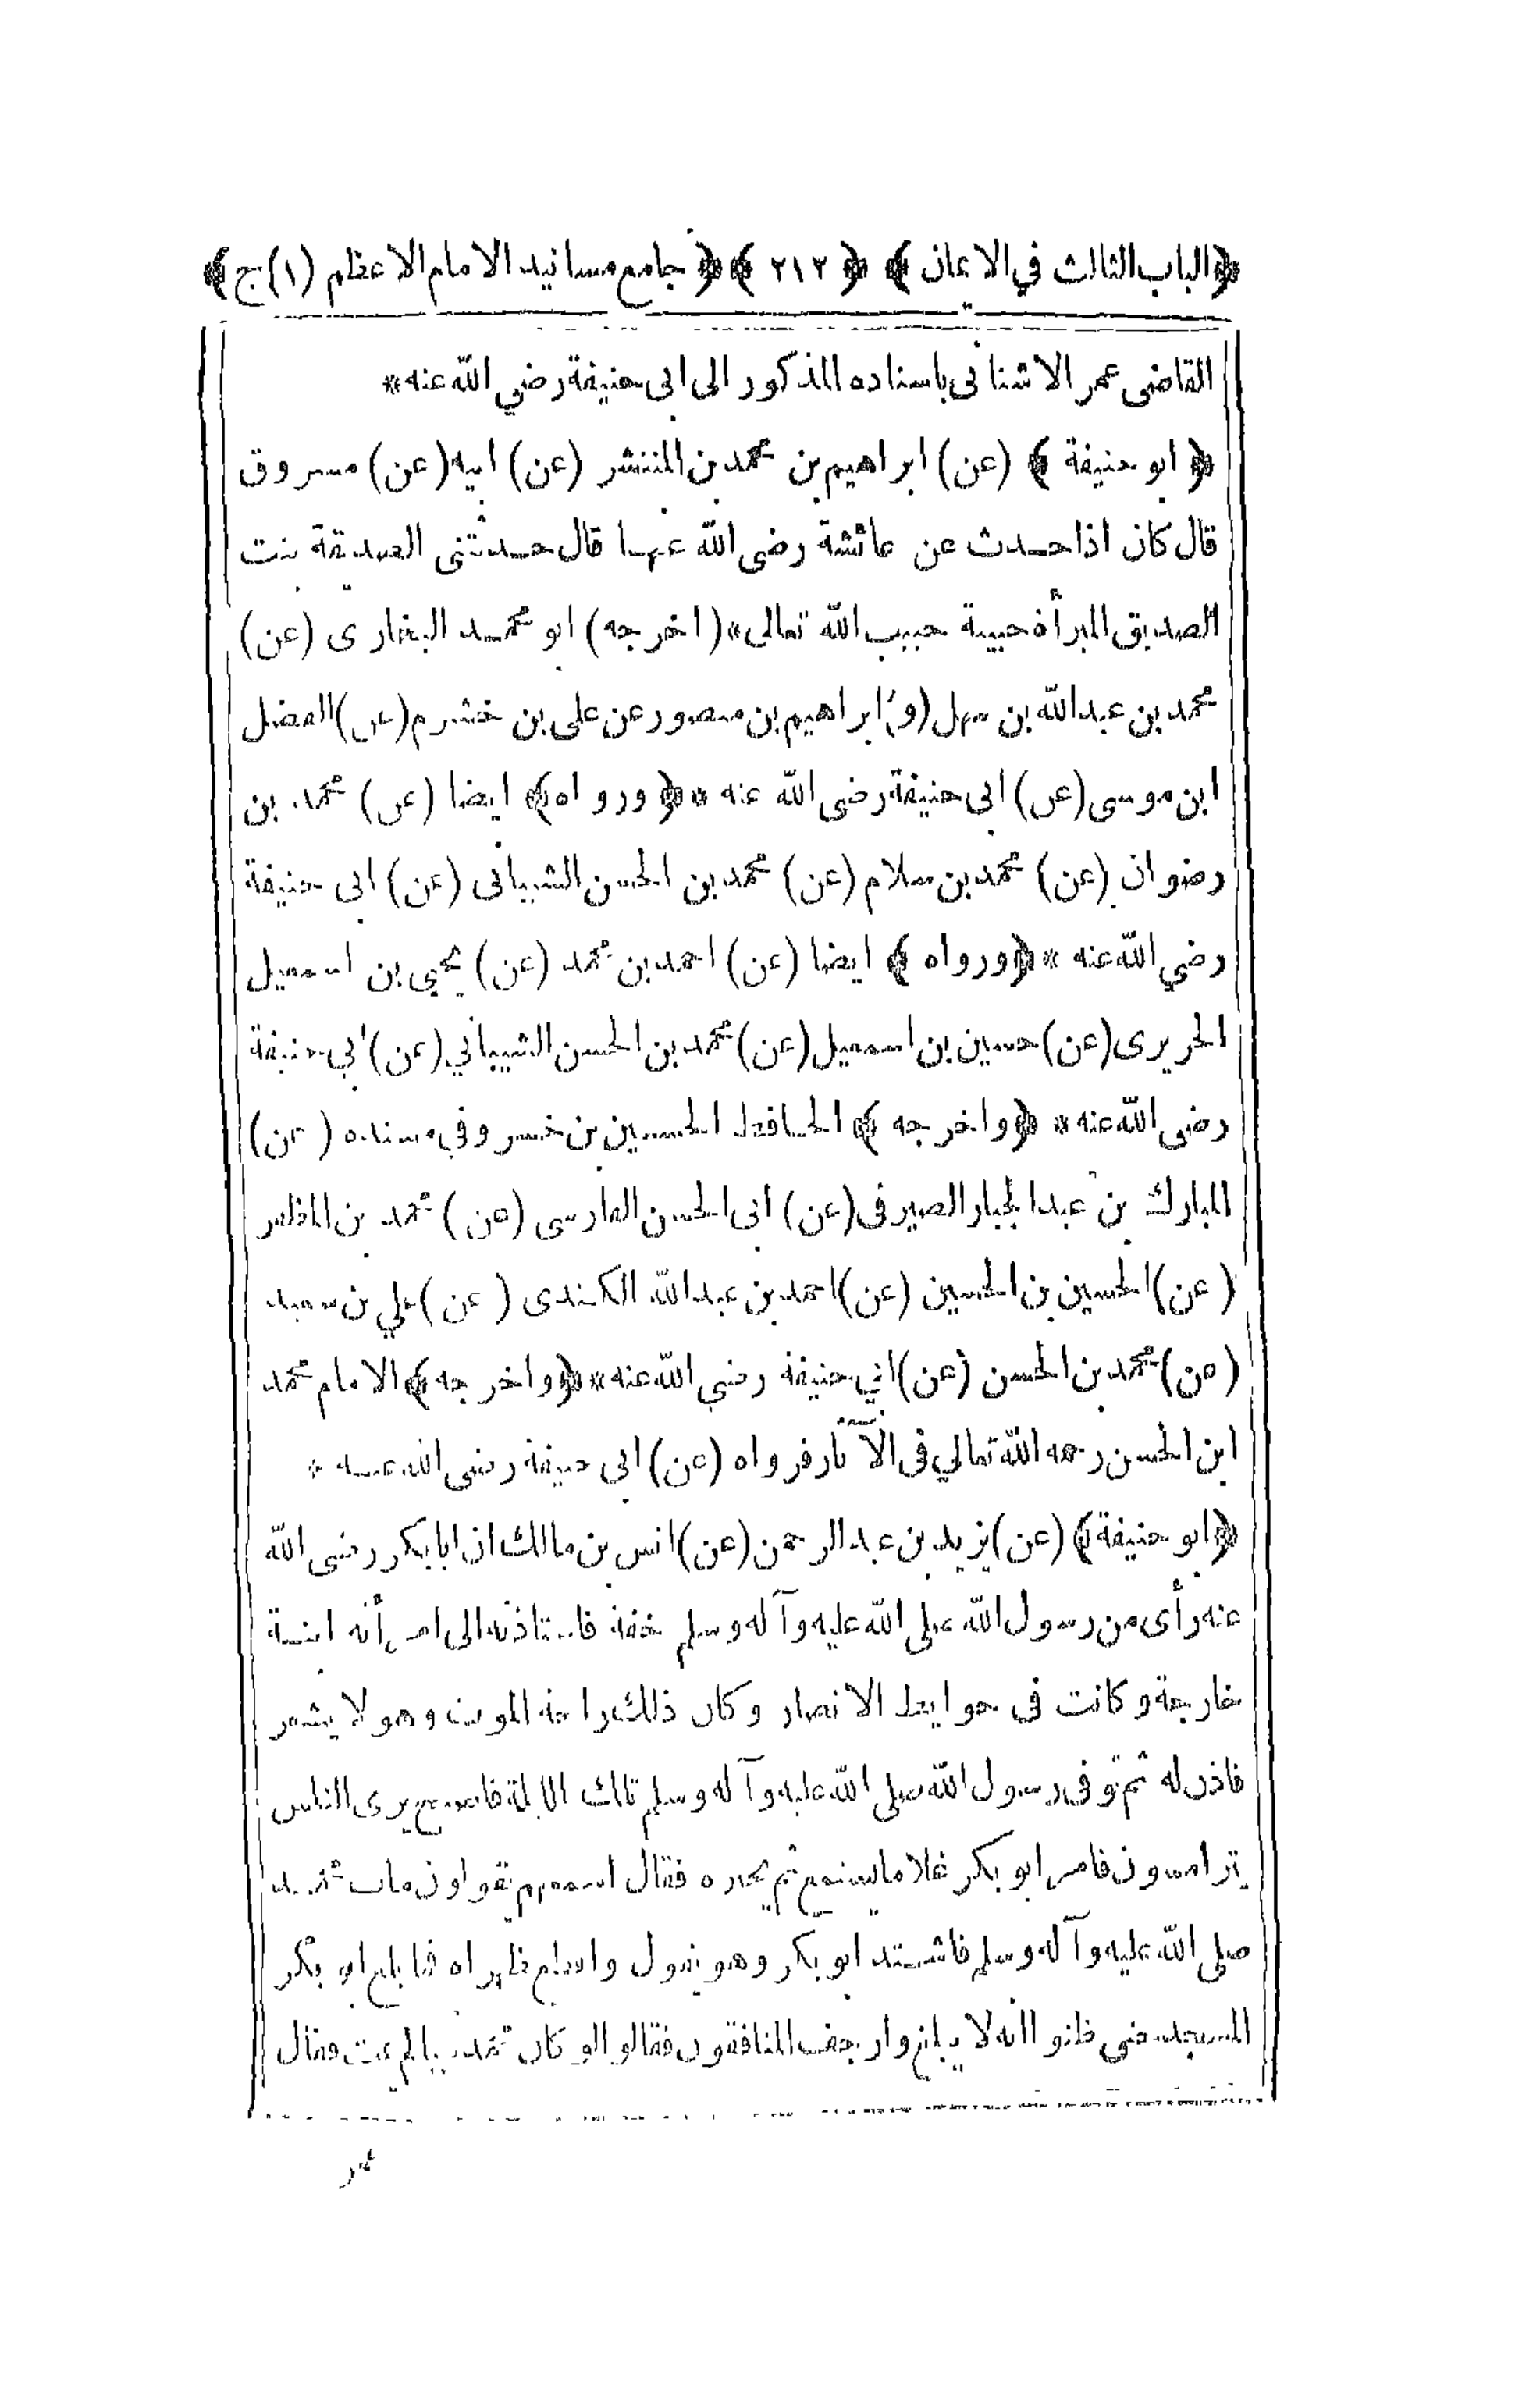 ﴿الباب الثالث في الايمان﴾ ﴿٢١٢﴾ ﴿جامع مسانيد الامام الاعظم (١) ج﴾
القاضى عمر الاشنانى باسناده المذكور الى ابى حنيفة رضي الله عنه*
﴿ ابو حنيفة ﴾ (عن) ابراهيم بن محمد بن المنتشر (عن) ابيه (عن) مسروق
قال كان اذا حدث عن عائشة رضى الله عنها قال حدثتنى الصديقة بنت
الصديق المبرأة حبيبة حبيب الله تعالى* (اخرجه) ابو محمد البخارى (عن)
محمد بن عبد الله بن سهل (و) ابراهيم بن منصور عن على بن خشرم (عن) الفضل
ابن موسى (عن) ابى حنيفة رضى الله عنه * ﴿ورواه﴾ ايضا (عن) محمد بن
رضوان (عن) محمد بن سلام (عن) محمد بن الحسن الشيبانى (عن) ابى حنيفة
رضي الله عنه * ﴿ورواه﴾ ايضا (عن) احمد بن محمد (عن) يحيى بن اسمعيل
الحريرى (عن) حسين بن اسمعيل (عن) محمد بن الحسن الشيباني (عن) ابي حنيفة
رضى الله عنه* ﴿واخرجه﴾ الحافظ الحسين بن خسرو فى مسنده (عن)
المبارك بن عبد الجبار الصيرفى (عن) ابى الحسن الفارسى (عن) محمد بن المظفر
(عن) الحسين بن الحسين (عن) احمد بن عبد الله الكندى (عن) علي بن سعيد
(عن) محمد بن الحسن (عن) ابي حنيفة رضي الله عنه* ﴿واخرجه﴾ الامام محمد
ابن الحسن رحمه الله تعالي فى الآثار فرواه (عن) ابى حنيفة رضى الله عنه *
﴿ابو حنيفة﴾ (عن) يزيد بن عبد الرحمن (عن) انس بن مالك ان ابا بكر رضى الله
عنه رأى من رسول الله صلى الله عليه وآله وسلم خفة فاستاذنه الى امرأته ابنة
خارجة وكانت فى حوايط الانصار وكان ذلك راحة الموت وهو لا يشعر
فاذن له ثم توفى رسول الله صلى الله عليه وآله وسلم تلك الليلة فاصبح يرى الناس
يترامسون فامر ابو بكر غلاما يستمع ثم يخبره فقال اسمعهم يقولون مات محمد
صلى الله عليه وآله وسلم فاشتد ابو بكر وهو يقول واقطع ظهراه فما بلغ ابو بكر
المسجد حتى ظنوا انه لا يبلغ وارجف المنافقون فقالوا لو كان محمد نبيا لم يمت فقال